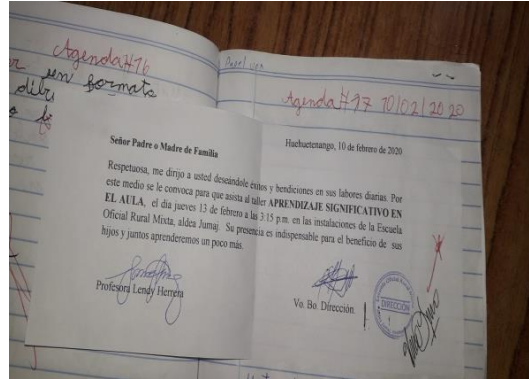 Agenda #16
en formato
Agenda #17 10/02/2020
Huehuetenango, 10 de febrero de 2020
Señor Padre o Madre de Familia
Respetuosa, me dirijo a usted deseándole éxitos y bendiciones en sus labores diarias. Por
este medio se le convoca para que asista al taller APRENDIZAJE SIGNIFICATIVO EN
EL AULA, el día jueves 13 de febrero a las 3:15 p.m. en las instalaciones de la Escuela
Oficial Rural Mixta, aldea Jumaj. Su presencia es indispensable para el beneficio de sus
hijos y juntos aprenderemos un poco más.
Profesora Lendy Herrera
Vo. Bo. Dirección
DIRECCIÓN